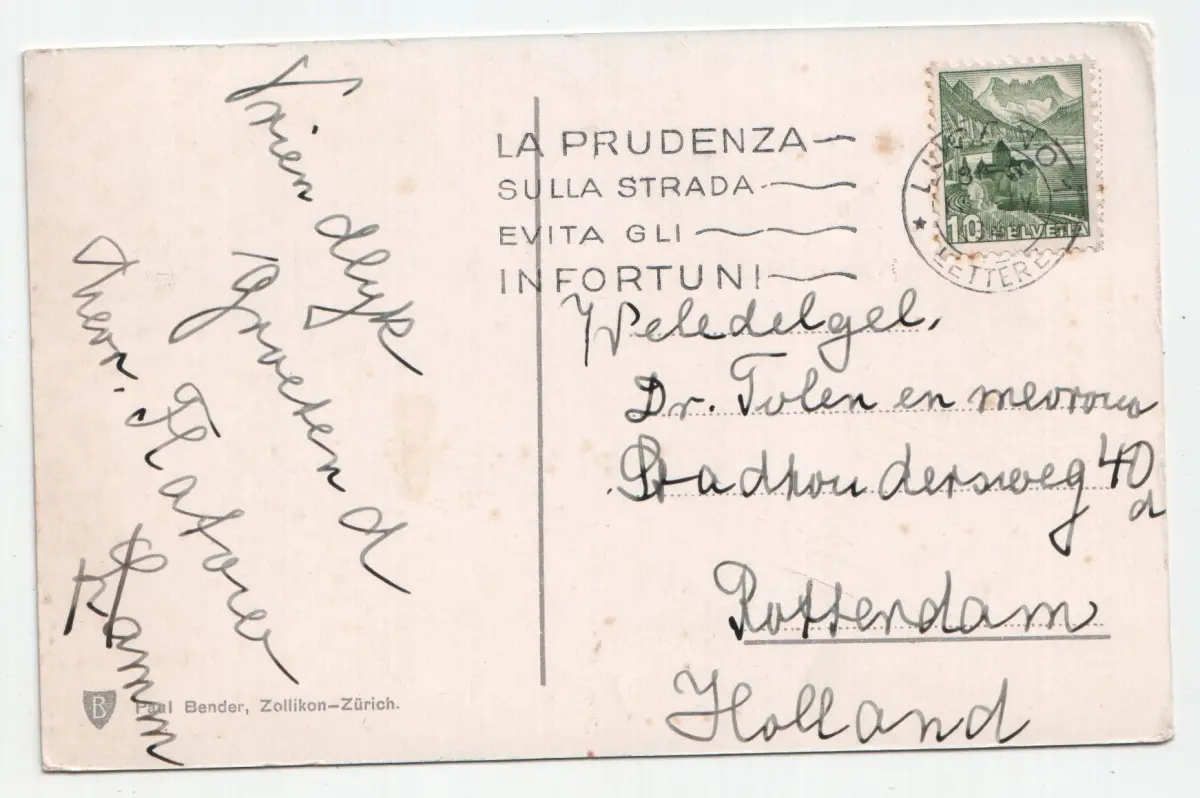 Vriendlyk
Groeten d
Mevr. Flatower
Kamm
LA PRUDENZA
SULLA STRADA
EVITA GLI
INFORTUNI
10 HELVETIA
LETTERE
Weledelgel.
Dr. Tolen en mevrouw
Stadhoudersweg 40
d
Rotterdam
Holland
B
Paul Bender, Zollikon-Zürich.